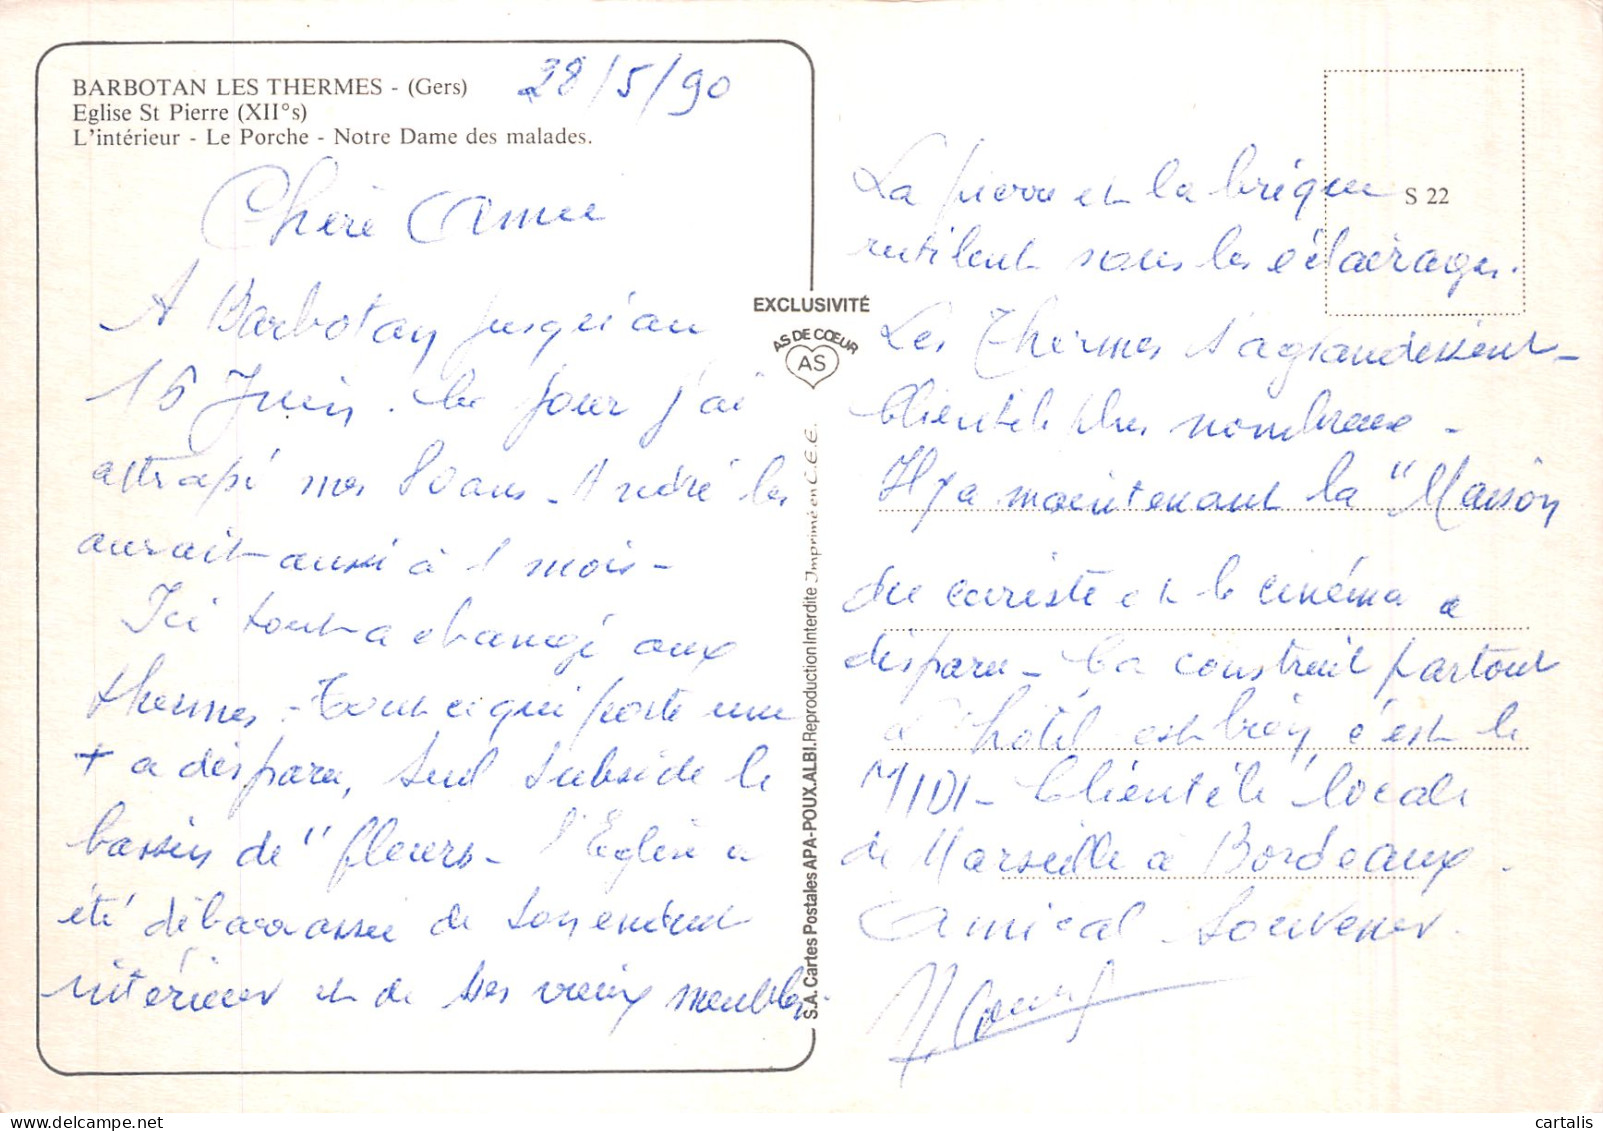 BARBOTAN LES THERMES - (Gers)
Eglise St Pierre (XII°s)
L'intérieur - Le Porche - Notre Dame des malades.
28/5/90
Chère Amie
A Barbotan jusqu'au
15 Juin. Ce jour j'ai
attrapé mes 80 ans - André les
aurait aussi à 1 mois -
Ici tout a changé aux
thermes - Tout ce qui porte une
+ a disparu, seul subside le
bassin de "fleurs - l'Eglise a
été débarrassée de son enduit
intérieur et de ses vieux meubles.
EXCLUSIVITÉ
AS DE CŒUR
AS
S.A. Cartes Postales APA-POUX. ALBI. Reproduction Interdite Imprimé en C.E.E.
S 22
La pierre et la brique
rutilent sous les éclairages.
Les Thermes s'agrandissent -
Clientèle plus nombreuse -
Il y a maintenant la "Maison
du curiste et le cinéma a
disparu - Ca construit partout
L'hôtel est bien c'est le
MIDI - Clientèle locale
de Marseille à Bordeaux -
Amical souvenir.